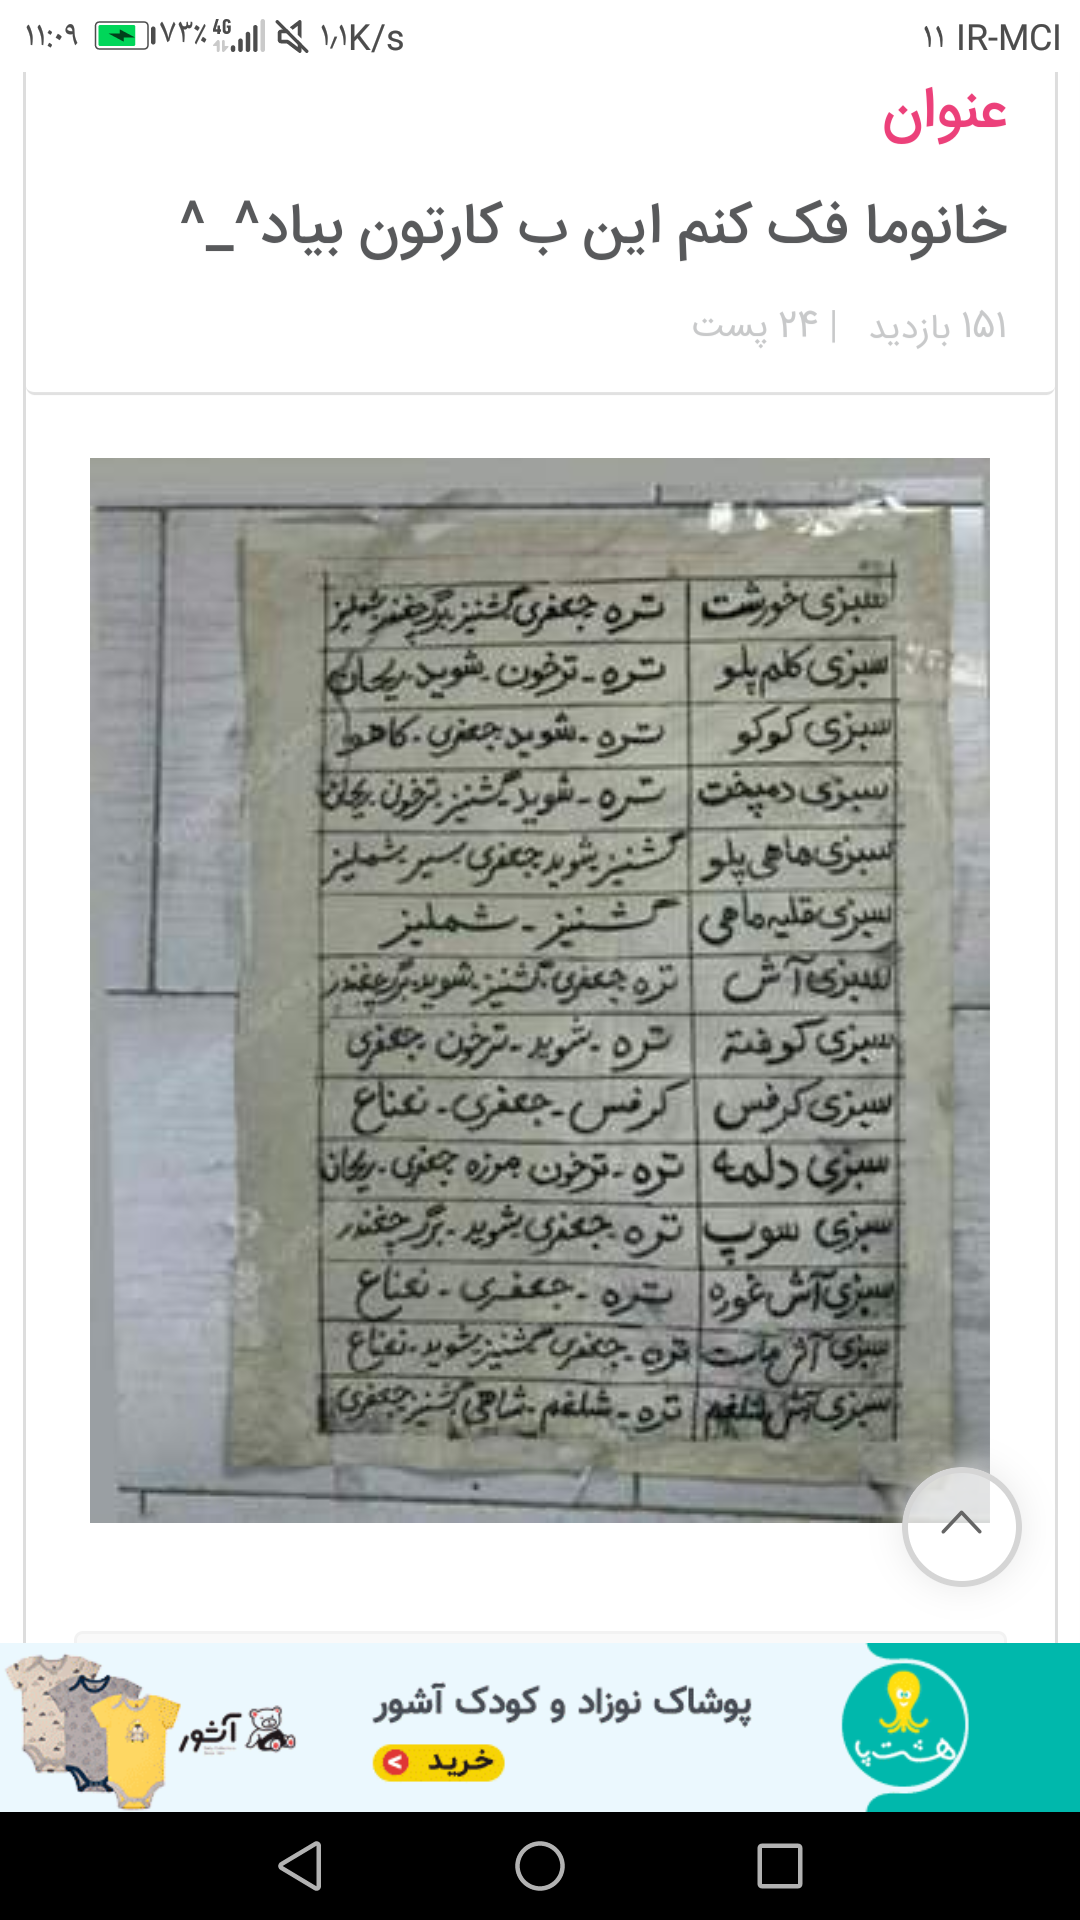 ۱۱:۰۹ ۷۳٪ 4G ۱٫۱K/s ۱۱ IR-MCI
عنوان
خانوما فک کنم این ب کارتون بیاد^_^
۱۵۱ بازدید | ۲۴ پست
سبزی خورشت تره جعفری گشنیز برگ چغندر شملیز
سبزی کلم پلو تره - ترخون - شوید - ریحان
سبزی کوکو تره - شوید جعفری - کاهو
سبزی دمپخت تره - شوید گشنیز ترخون ریحان
سبزی ماهی پلو گشنیز شوید جعفری سیر شملیز
سبزی قلیه ماهی گشنیز - شملیز
سبزی آش تره جعفری گشنیز شوید برگ چغندر
سبزی کوفته تره - شوید - ترخون جعفری
سبزی کرفس کرفس - جعفری - نعناع
سبزی دلمه تره - ترخون مرزه جعفری - ریحان
سبزی سوپ تره جعفری شوید - برگ چغندر
سبزی آش غوره تره - جعفری - نعناع
سبزی آش ماست تره - جعفری گشنیز شوید - نعناع
سبزی آش شلغم تره - شلغم - شاهی گشنیز جعفری
پوشاک نوزاد و کودک آشور
خرید >
آشور
هشت پا